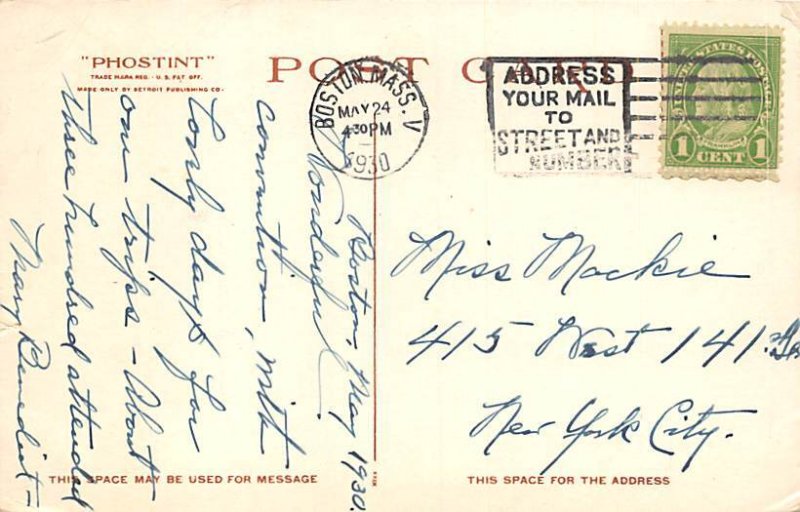 "PHOSTINT"
TRADE MARK REG. - U.S. PAT. OFF.
MADE ONLY BY DETROIT PUBLISHING CO.
POST CARD
BOSTON, MASS. V
MAY 24
4 30 PM
1930
ADDRESS
YOUR MAIL
TO
STREET AND
NUMBER
UNITED STATES POSTAGE
1 CENT 1
Boston, May 1930.
Wonderful
convention, with
lovly days for
our trips - About
three hundred attended
Mary Benedict -
Miss Mackie
415 West 141. St
New York City.
THIS SPACE MAY BE USED FOR MESSAGE
THIS SPACE FOR THE ADDRESS